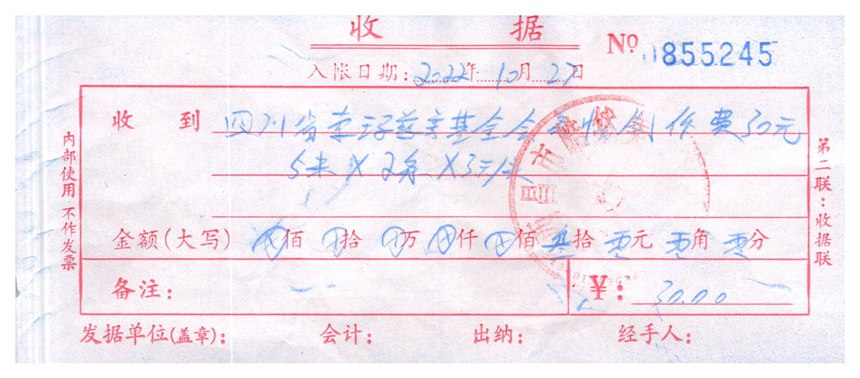 收 据
№ 0855245
入帐日期：2022年10月27日
收 到 四川省 慈善基金会 制作费30元
5米×2条×3元/米
金额(大写) ⊗佰⊗拾⊗万⊗仟⊗佰叁拾零元零角零分
备注：
¥：30.00
发据单位(盖章)： 会计： 出纳： 经手人：
内部使用 不作发票
第二联：收据联